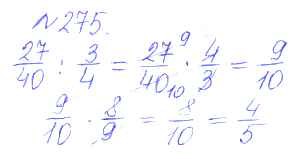 №275.
27/40 : 3/4 = 27⁹/40₁₀ · 4/3 = 9/10
9/10 · 8/9 = 8/10 = 4/5